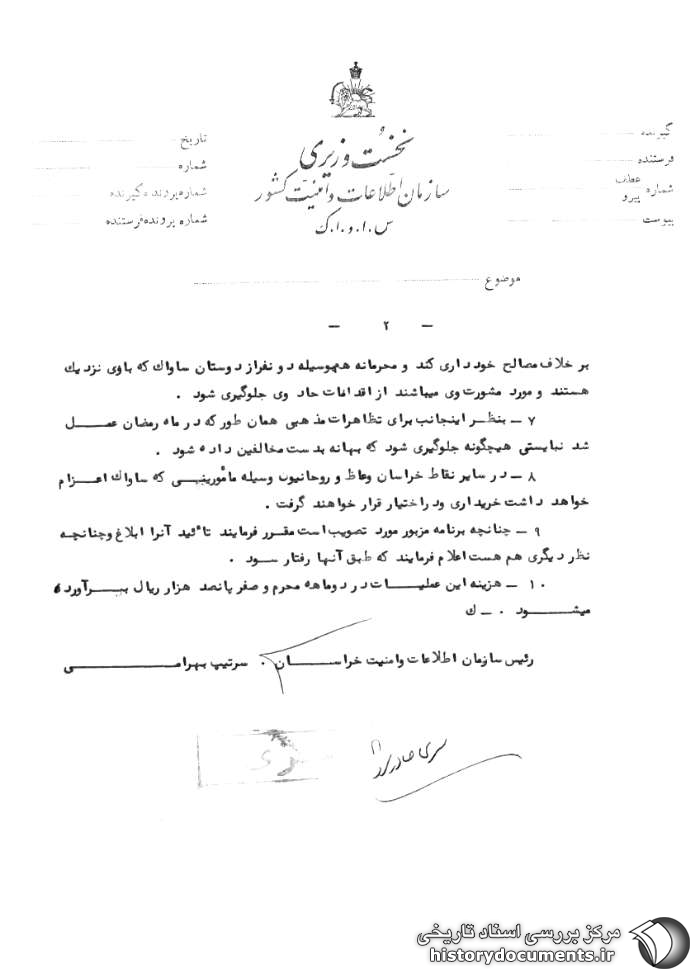 نخست وزیری
سازمان اطلاعات و امنیت کشور
س.ا.و.ا.ک
گیرنده
فرستنده
شماره عطف
پیرو
پیوست
تاریخ
شماره
شماره پرونده گیرنده
شماره پرونده فرستنده
موضوع
- ۲ -
بر خلاف مصالح خودداری کند و محرمانه هم بوسیله دو نفر از دوستان ساواک که باوی نزدیک
هستند و مورد مشورت وی میباشند از اقدامات حاد وی جلوگیری شود .
۷ – بنظر اینجانب برای تظاهرات مذهبی همان طور که در ماه رمضان عمل
شد نبایستی هیچگونه جلوگیری شود که بهانه بدست مخالفین داده شود .
۸ – در سایر نقاط خراسان وعاظ و روحانیون وسیله مأمورینی که ساواک اعزام
خواهد داشت خریداری ودراختیار قرار خواهند گرفت .
۹ – چنانچه برنامه مزبور مورد تصویب است مقرر فرمایند تائید آنرا ابلاغ وچنانچه
نظر دیگری هم هست اعلام فرمایند که طبق آنها رفتار شود .
۱۰ – هزینه این عملیات در دوماهه محرم و صفر پانصد هزار ریال برآورده
میشود . – ک
رئیس سازمان اطلاعات وامنیت خراسان . سرتیپ بهرامی
مرکز بررسی اسناد تاریخی
historydocuments.ir